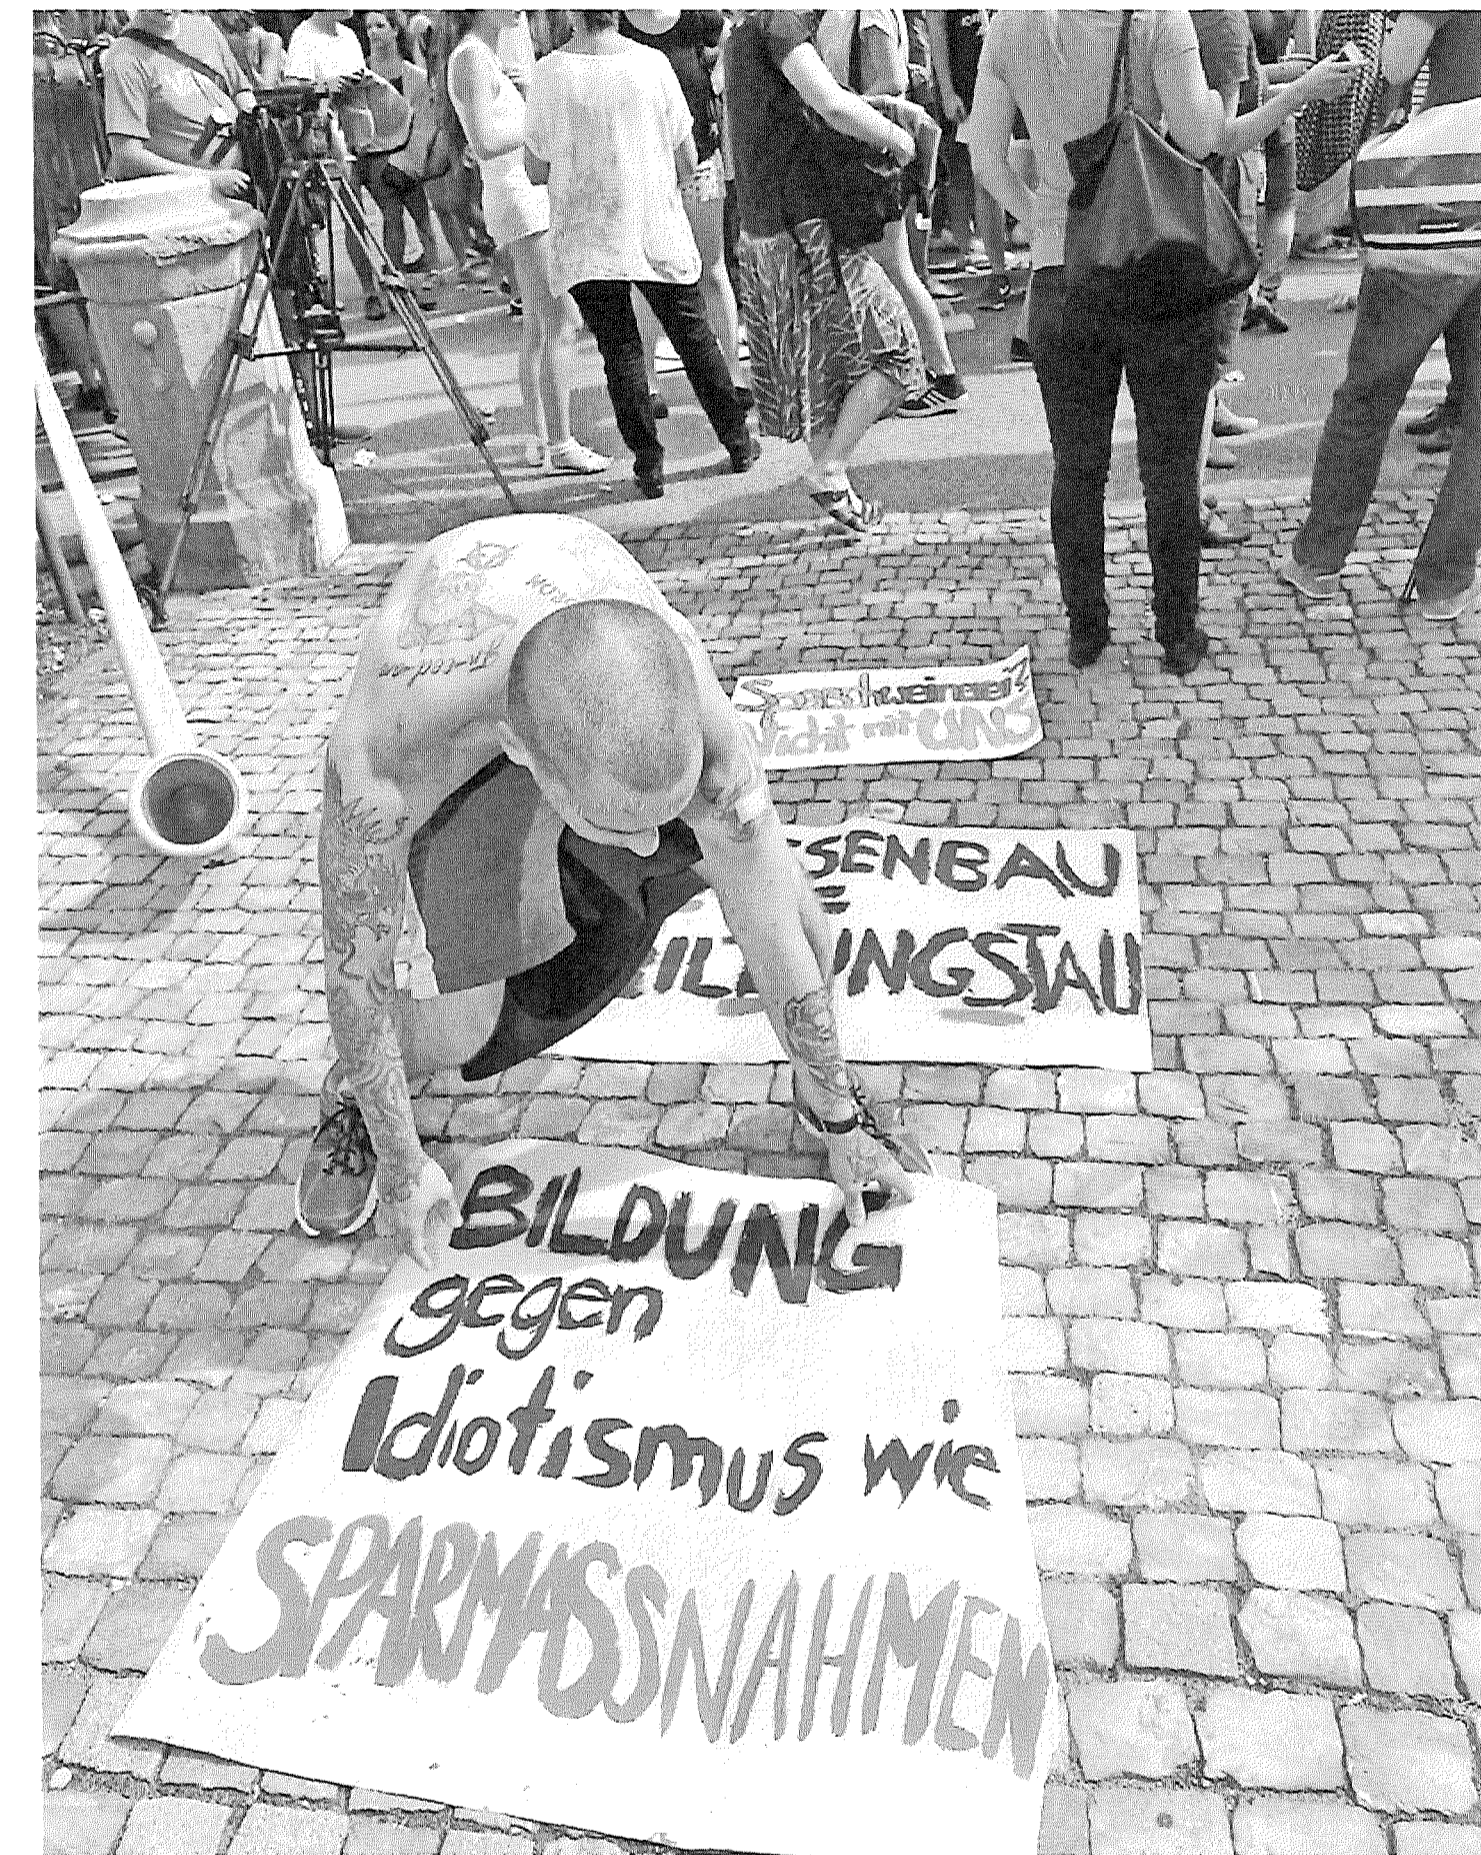 Sparschweinerei?
Nicht mit UNS
SENBAU
UNGSTAU
BILDUNG
gegen
Idiotismus wie
SPARMASSNAHMEN